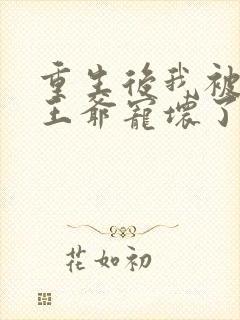 重生後我被
王爺寵壞了
花如初